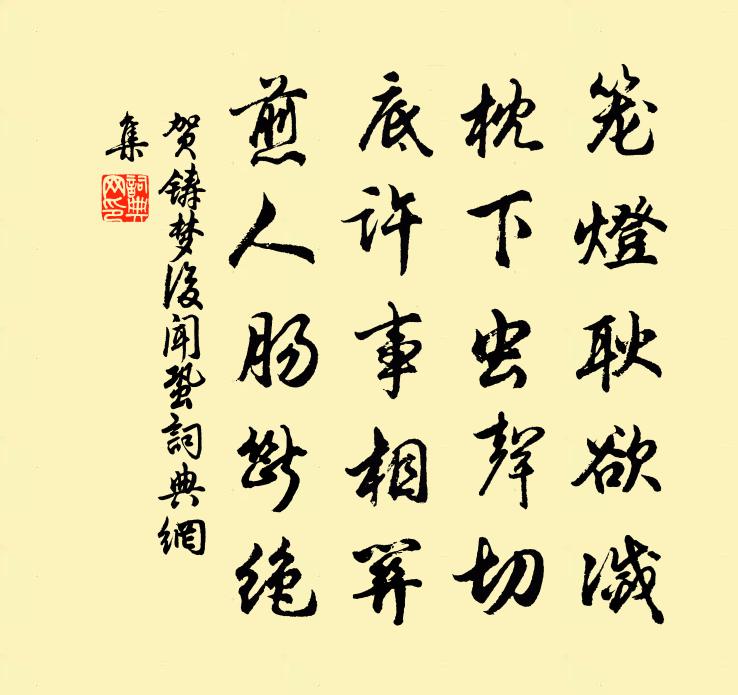 笼燈耿欲滅
枕下虫聲切
底许事相关
煎人肠断绝
贺铸梦後闻蛩詞典網
集
詞典網印